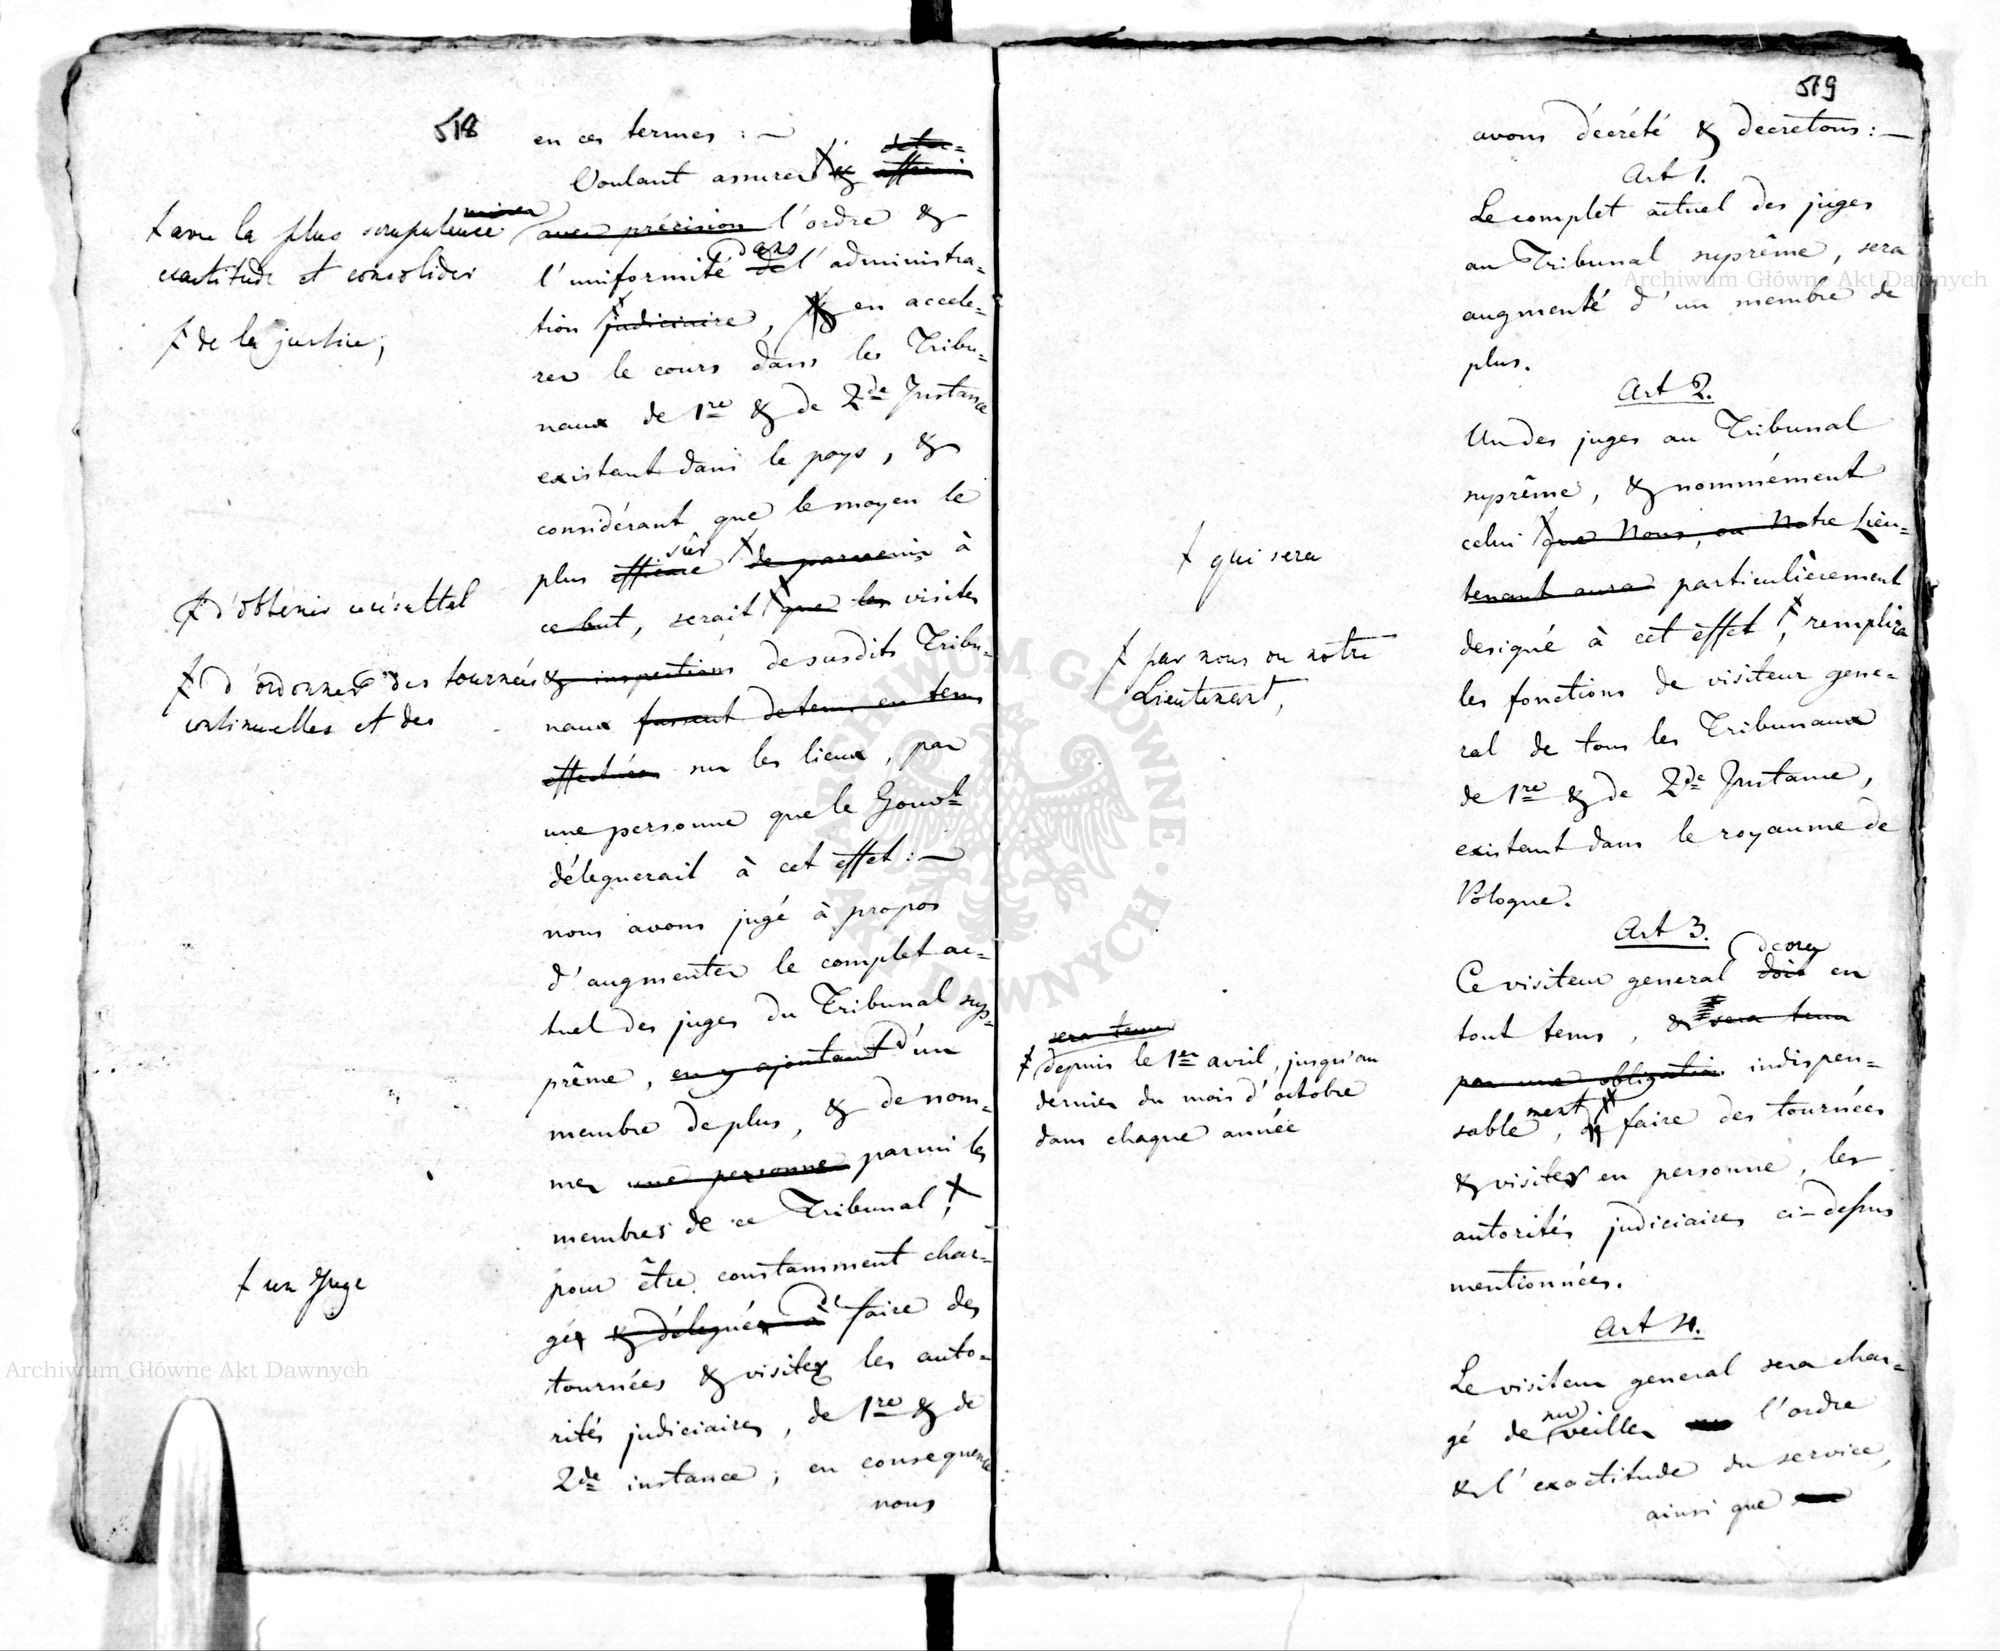 518
en ces termes : —
Voulant assurer & 
avec précision l'ordre &
l'uniformité dans de l'administra=
tion judiciaire, & en accele=
rer le cours dans les Tribu=
naux de 1re & de 2de Instance
existant dans le pays, &
considérant que le moyen le
plus efficace sûr de parvenir à
ce but, serait que les visites
& inspections desusdits Tribu=
naux fussent de tems en tems
effectuées sur les lieux, par
une personne que le Gouvt
déleguerait à cet effet : —
nous avons jugé à propos
d'augmenter le complet ac=
tuel des juges du Tribunal sup=
prême, en y ajoutant d'un
membre de plus, & de nom=
mer une personne parmi les
membres de ce Tribunal,
pour être constamment char=
gé & délegué à d' faire des
tournées & visiter les auto=
rités judiciaires, de 1re & de
2de instance ; en consequence
nous
† avec la plus scrupuleuse
exactitude et consolider
† de la justice,
† d'obtenir ce résultat
† d'ordonner des tournées
continuelles et des
† un Juge
519
avons décrété & decretons : —
Art 1.
Le complet actuel des juges
au Tribunal suprême, sera
augmenté d'un membre de
plus.
Art 2.
Un des juges au Tribunal
suprême, & nommément
celui que Nous, ou Notre Lieu=
tenant aura particulièrement
designé à cet effet, remplira
les fonctions de visiteur gene=
ral de tous les Tribunaux
de 1re & de 2de Instance,
existant dans le royaume de
Pologne.
Art 3.
Ce visiteur general devra doit en
tout tems, & sera tenu
par une obligation indispen=
sablement, de faire des tournées
& visiter en personne, les
autorités judiciaires ci-dessus
mentionnées.
Art 4.
Le visiteur general sera char=
gé de surveiller l'ordre
& l'exactitude du service,
ainsi que
† qui sera
† par nous ou notre
Lieutenant,
sera tenu
† depuis le 1er avril, jusqu'au
dernier du mois d'octobre
dans chaque année
Archiwum Główne Akt Dawnych
Archiwum Główne Akt Dawnych
ARCHIWUM GŁÓWNE AKT DAWNYCH